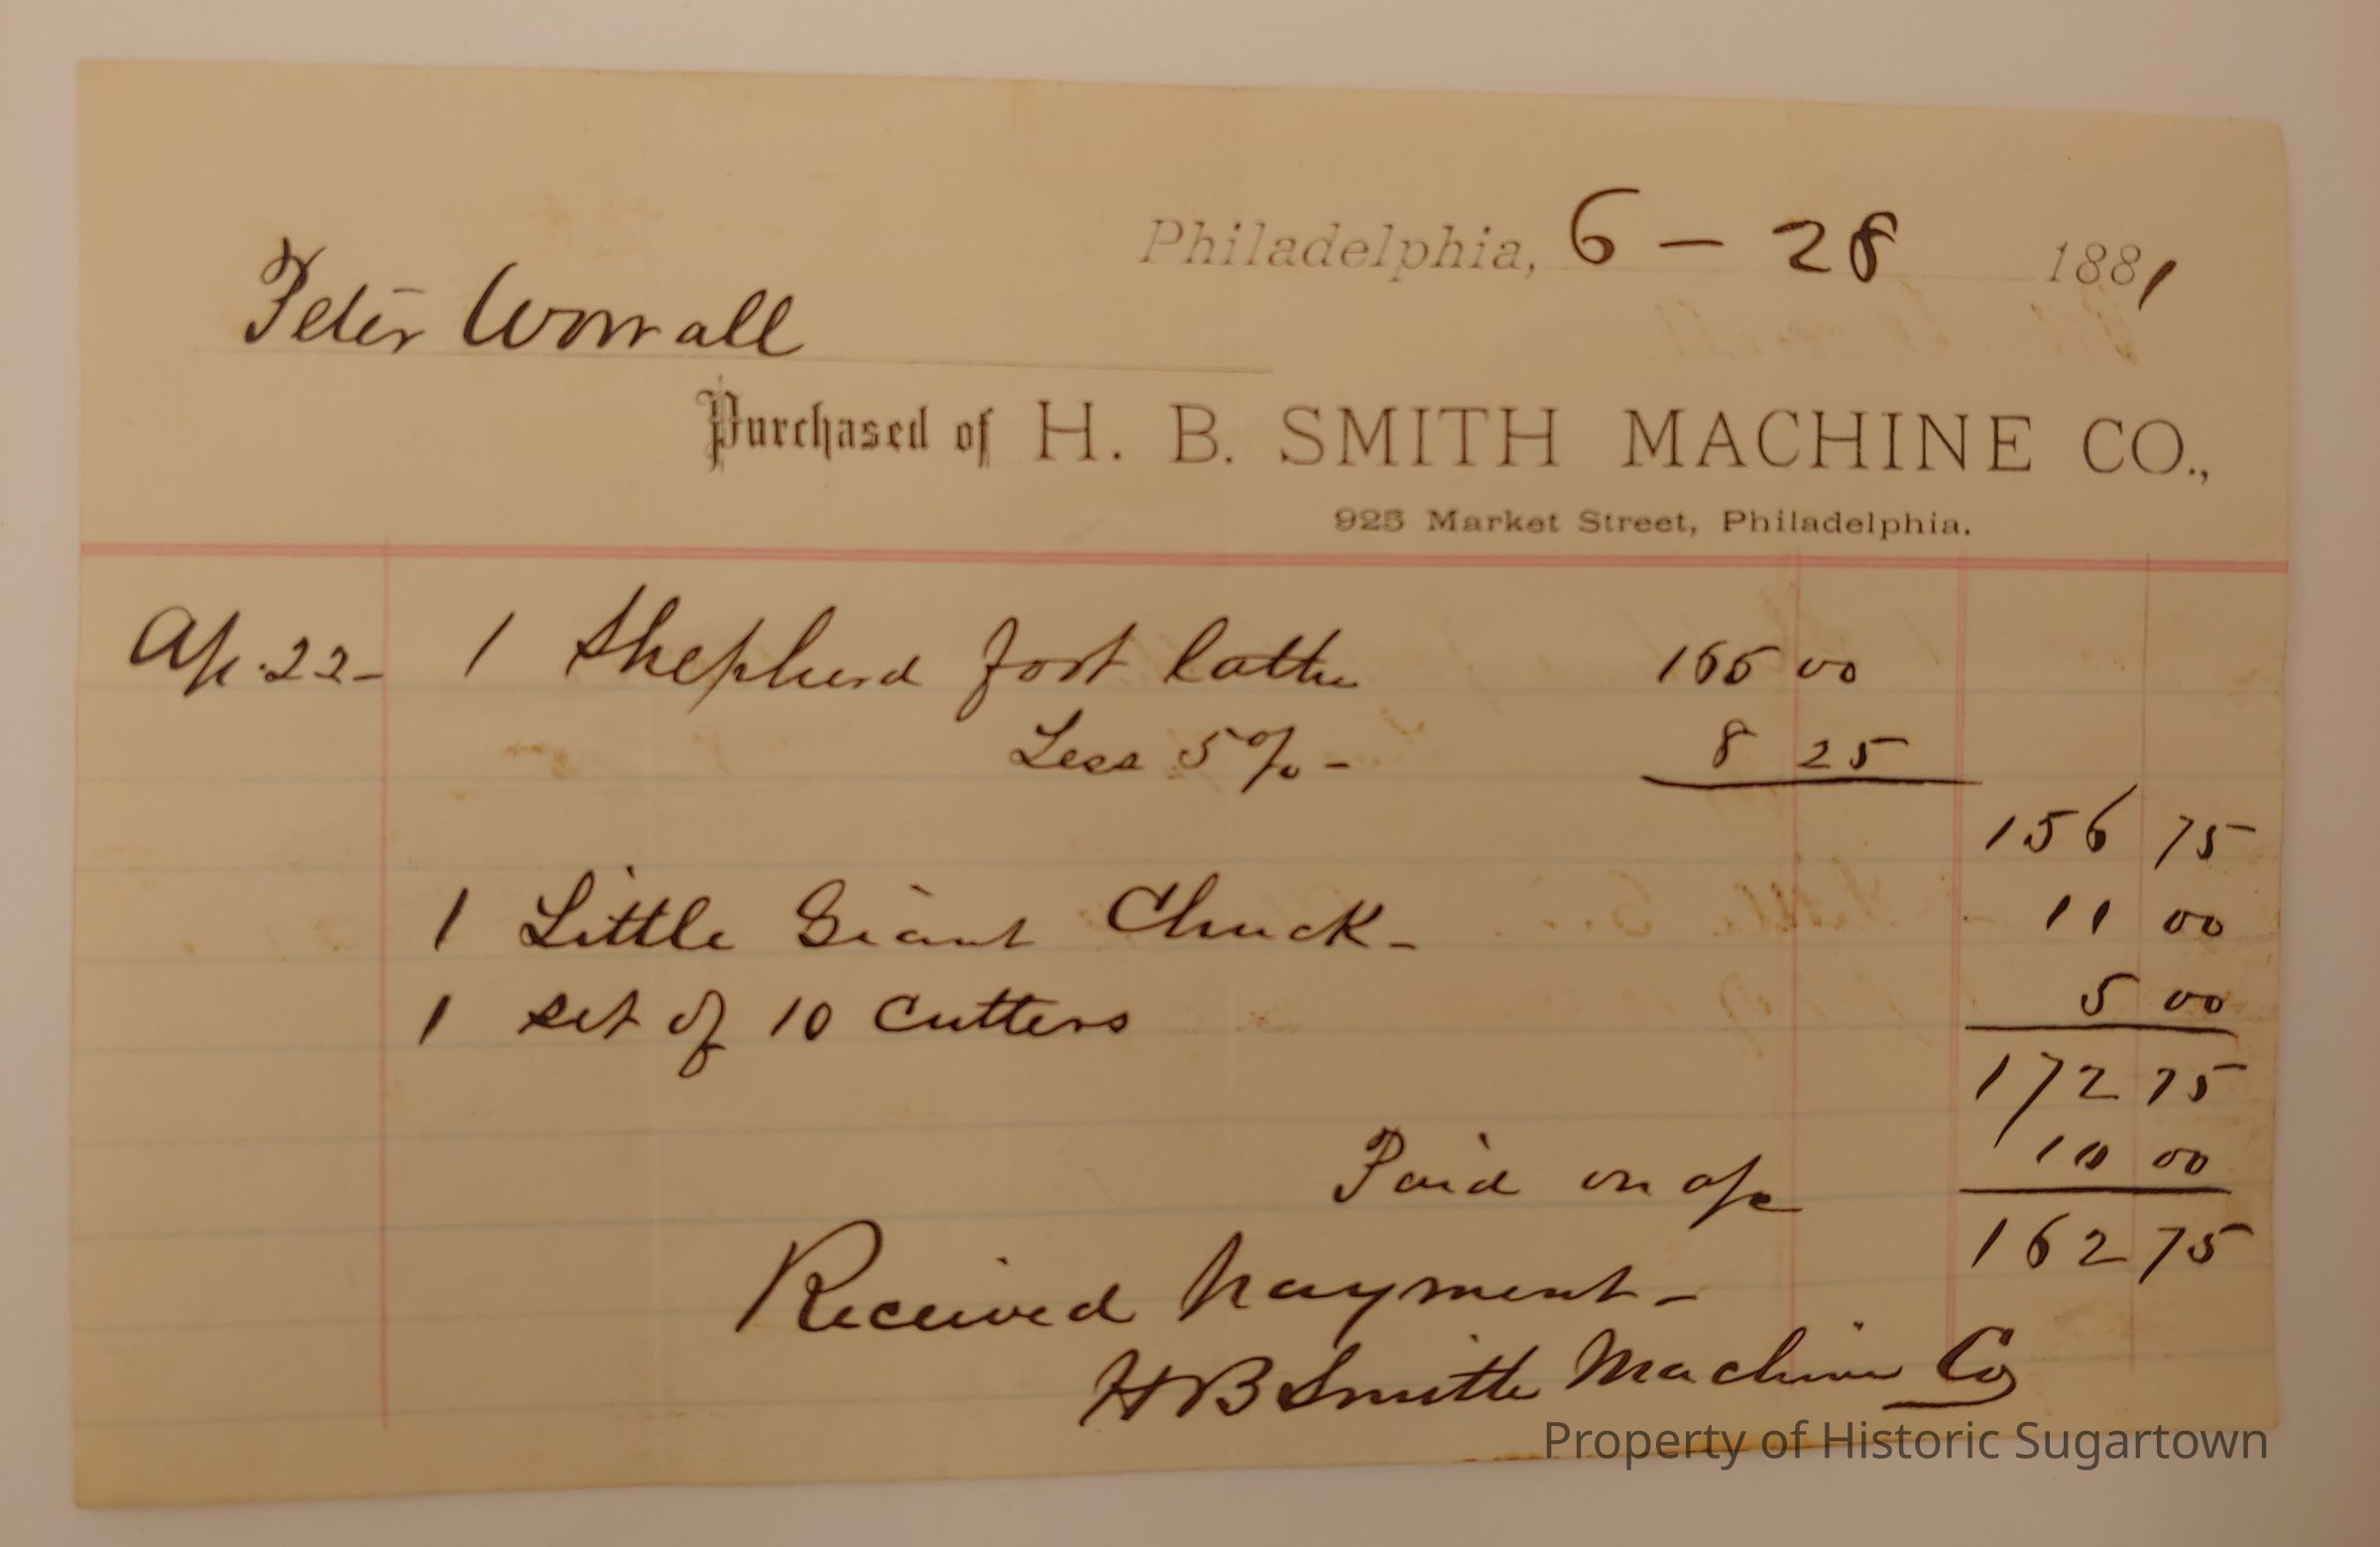 Philadelphia, 6 - 28 1881
Peter Worrall
Purchased of H. B. SMITH MACHINE CO.,
925 Market Street, Philadelphia.
Ap. 22 - 1 Shepherd foot lathe 165 00
Less 5% - 8 25
156 75
1 Little Giant Chuck - 11 00
1 set of 10 cutters 5 00
172 75
Paid on a/c 10 00
162 75
Received payment -
H B Smith Machine Co
Property of Historic Sugartown